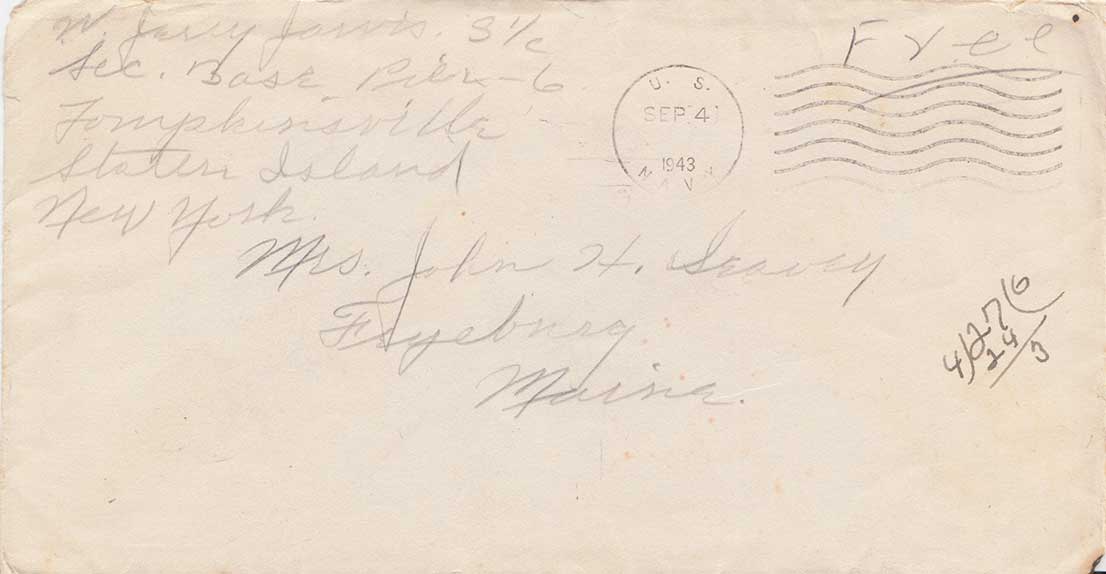 W. Jerry Jarvis. S 1/c
Sec. Base Pier-6
Tompkinsville
Staten Island
New York.
Free
U. S.
SEP 4
1943
NAVY
Mrs. John H. Seavey
Fryeburg
Maine.
4)27(6
24
3